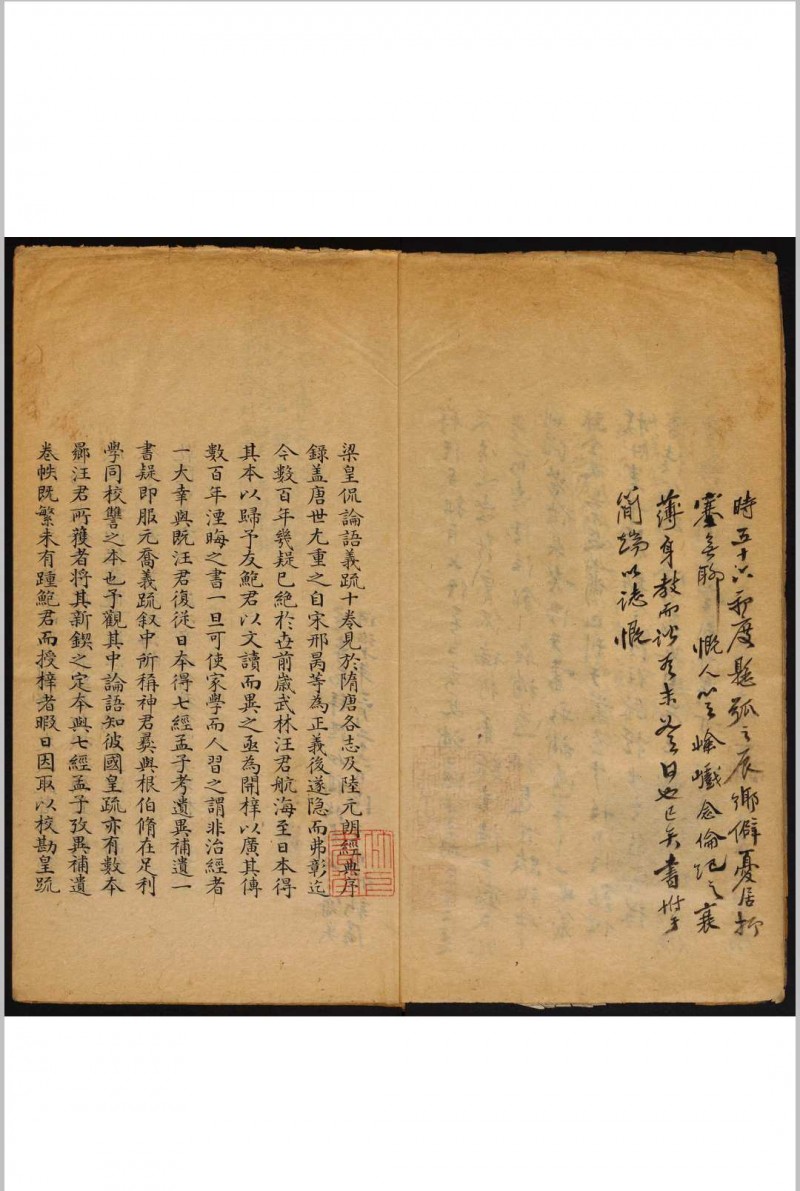 時五十六初度懸弧之辰鄉僻憂居抑
塞無聊 慨人心嶮巇念倫紀之衰
薄身教而訟者未 日也已矣書
簡端以誌慨
梁皇侃論語義疏十卷見於隋唐各志及陸元朗經典序
録盖唐世尤重之自宋邢昺等為正義後遂隐而弗彰迄
今數百年幾疑已絶於世前歳武林汪君航海至日本得
其本以歸予友鮑君以文讀而異之亟為開梓以廣其傳
數百年湮晦之書一旦可使家學而人習之謂非治經者
一大幸與既汪君復從日本得七經孟子考遺異補遺一
書疑即服元喬義疏叙中所稱神君彛與根伯脩在足利
學同校讐之本也予觀其中論語知彼國皇疏亦有數本
鄉汪君所獲者将其新鍥之定本與七經孟子攷異補遺
卷帙既繁未有踵鮑君而授梓者暇日因取以校勘皇疏